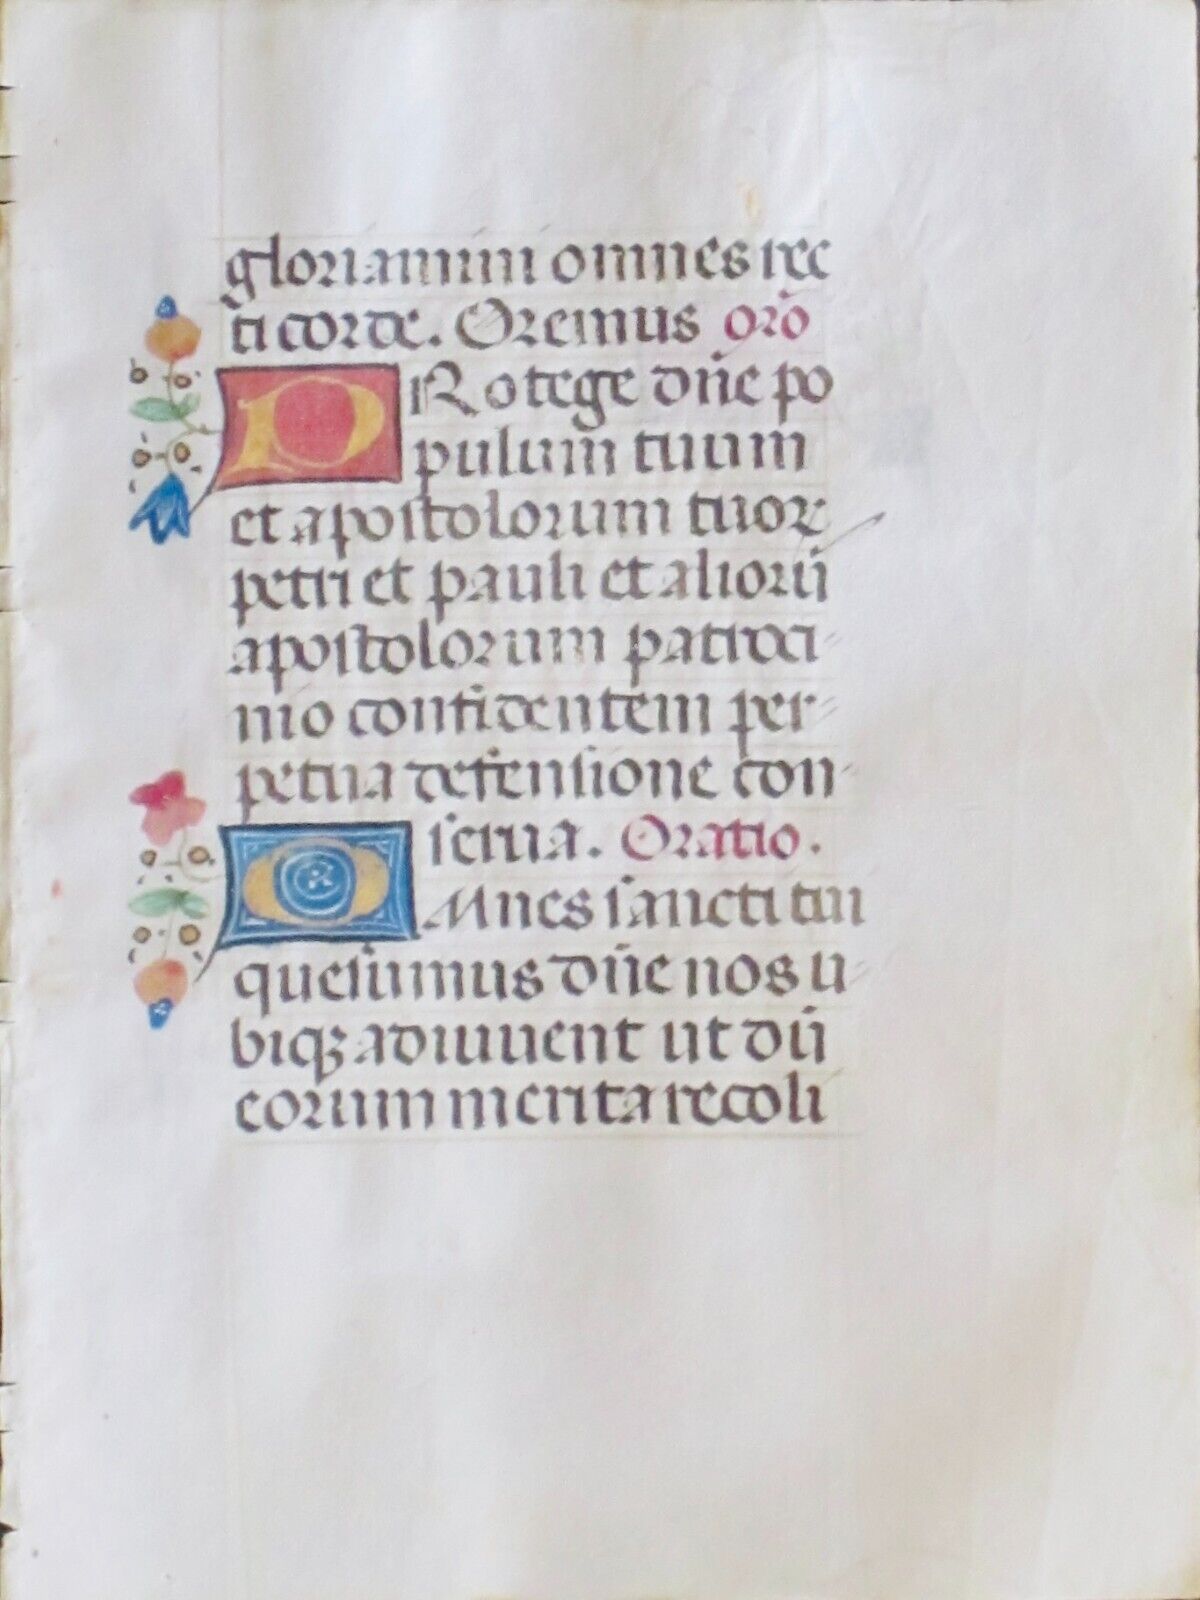 gloriamini omnes rec
ti corde. Oremus oro
PRotege dñe po
pulum tuum
et apostolorum tuorꝝ
petri et pauli et aliorũ
apostolorum patroci-
nio confidentem per-
petua defensione con-
serua. Oratio.
OMnes sancti tui
quesumus dñe nos u-
biqꝫ adiuuent ut dũ
eorum merita recoli